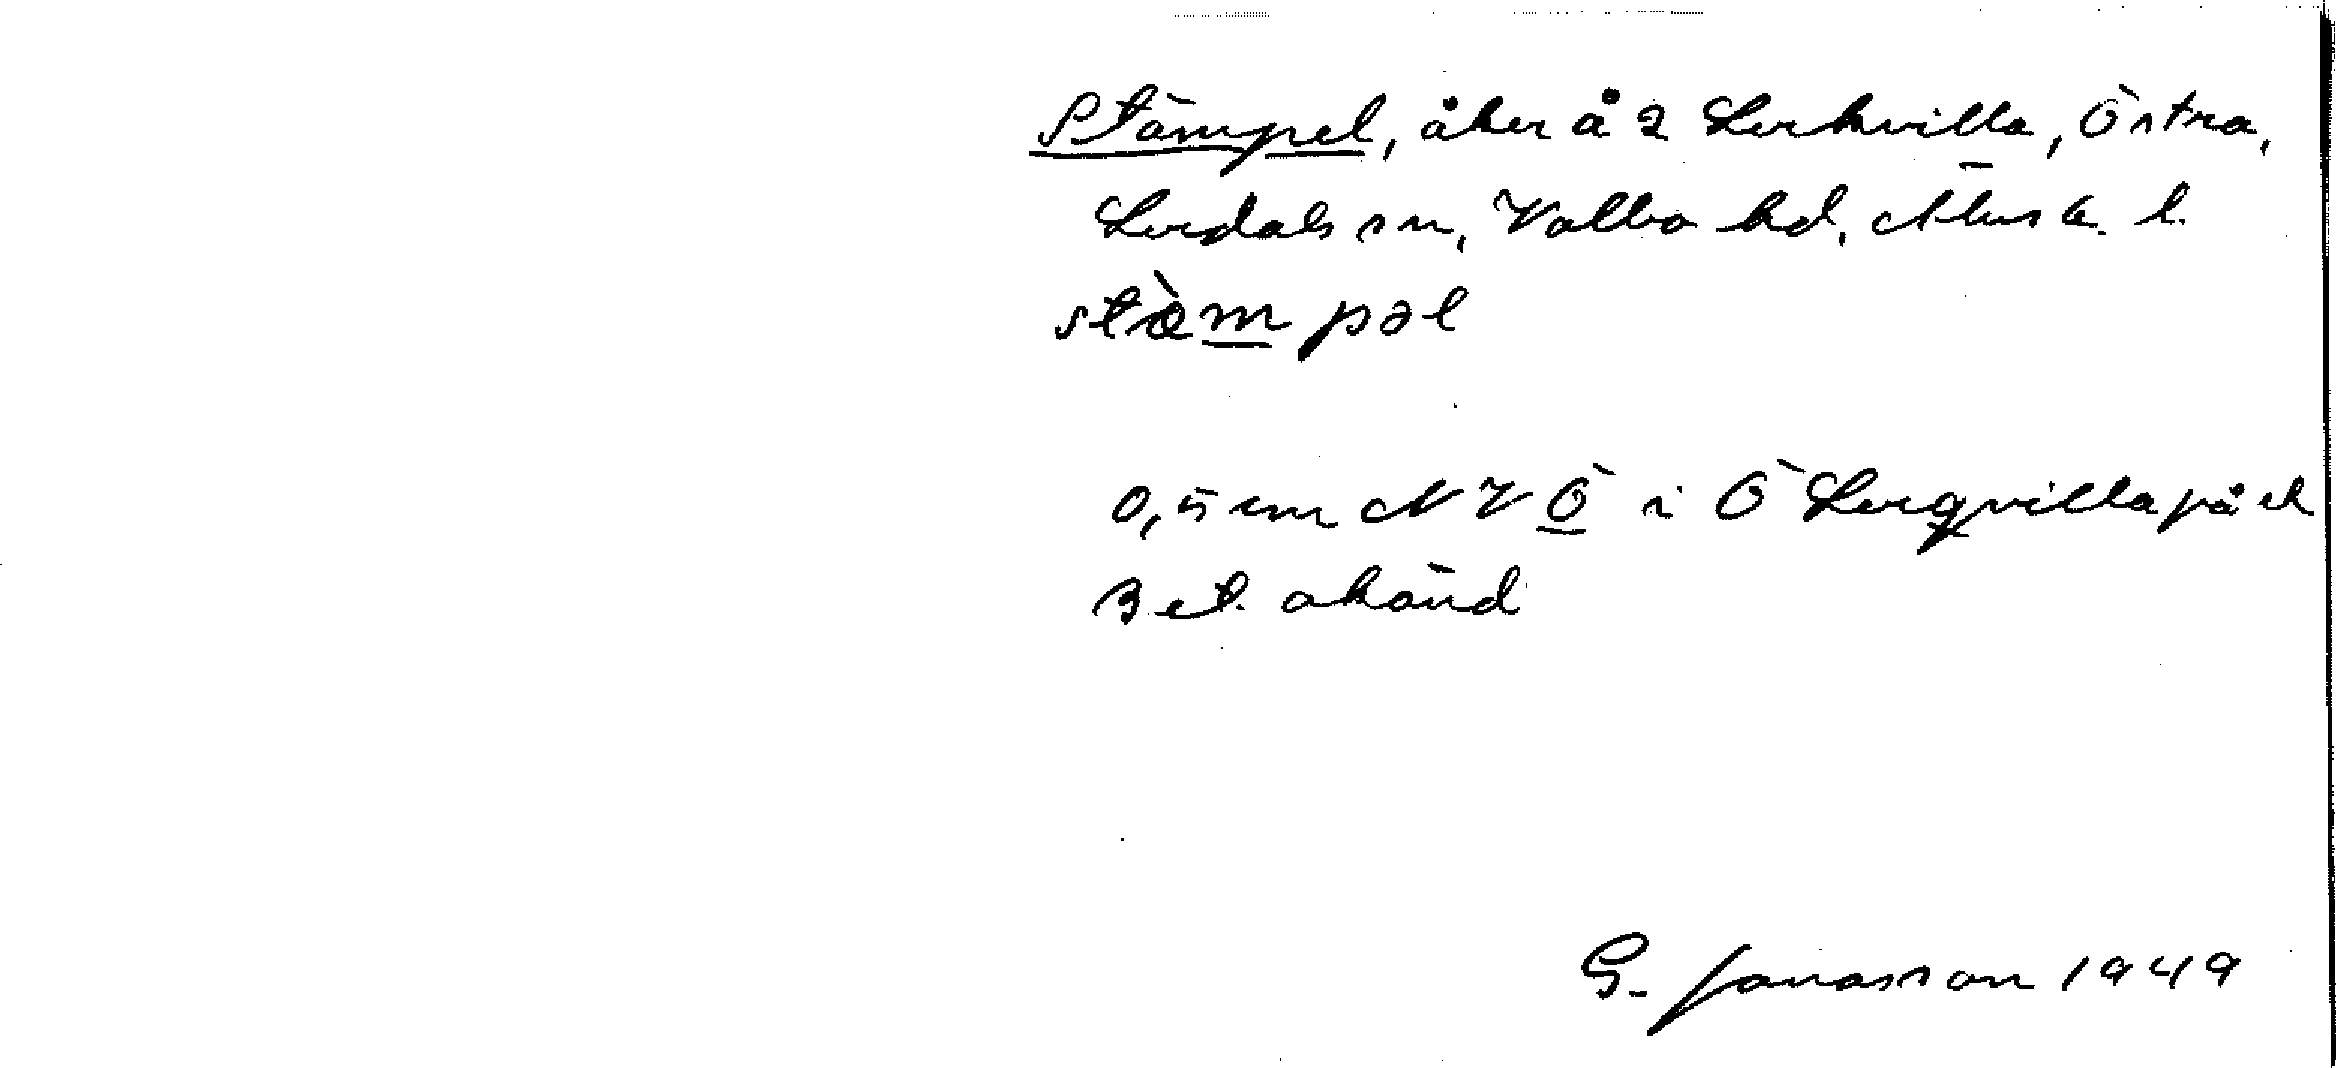 Stämpel, åker å 2 Lerkvilla, Östra,
Lerdals sn, Valbo hd, Älvsb. l.
stæ̀mpəl
0,5 cm NV Ö i Ö Lerqvilla på ek
Bet. okänd
G. Jonasson 1949